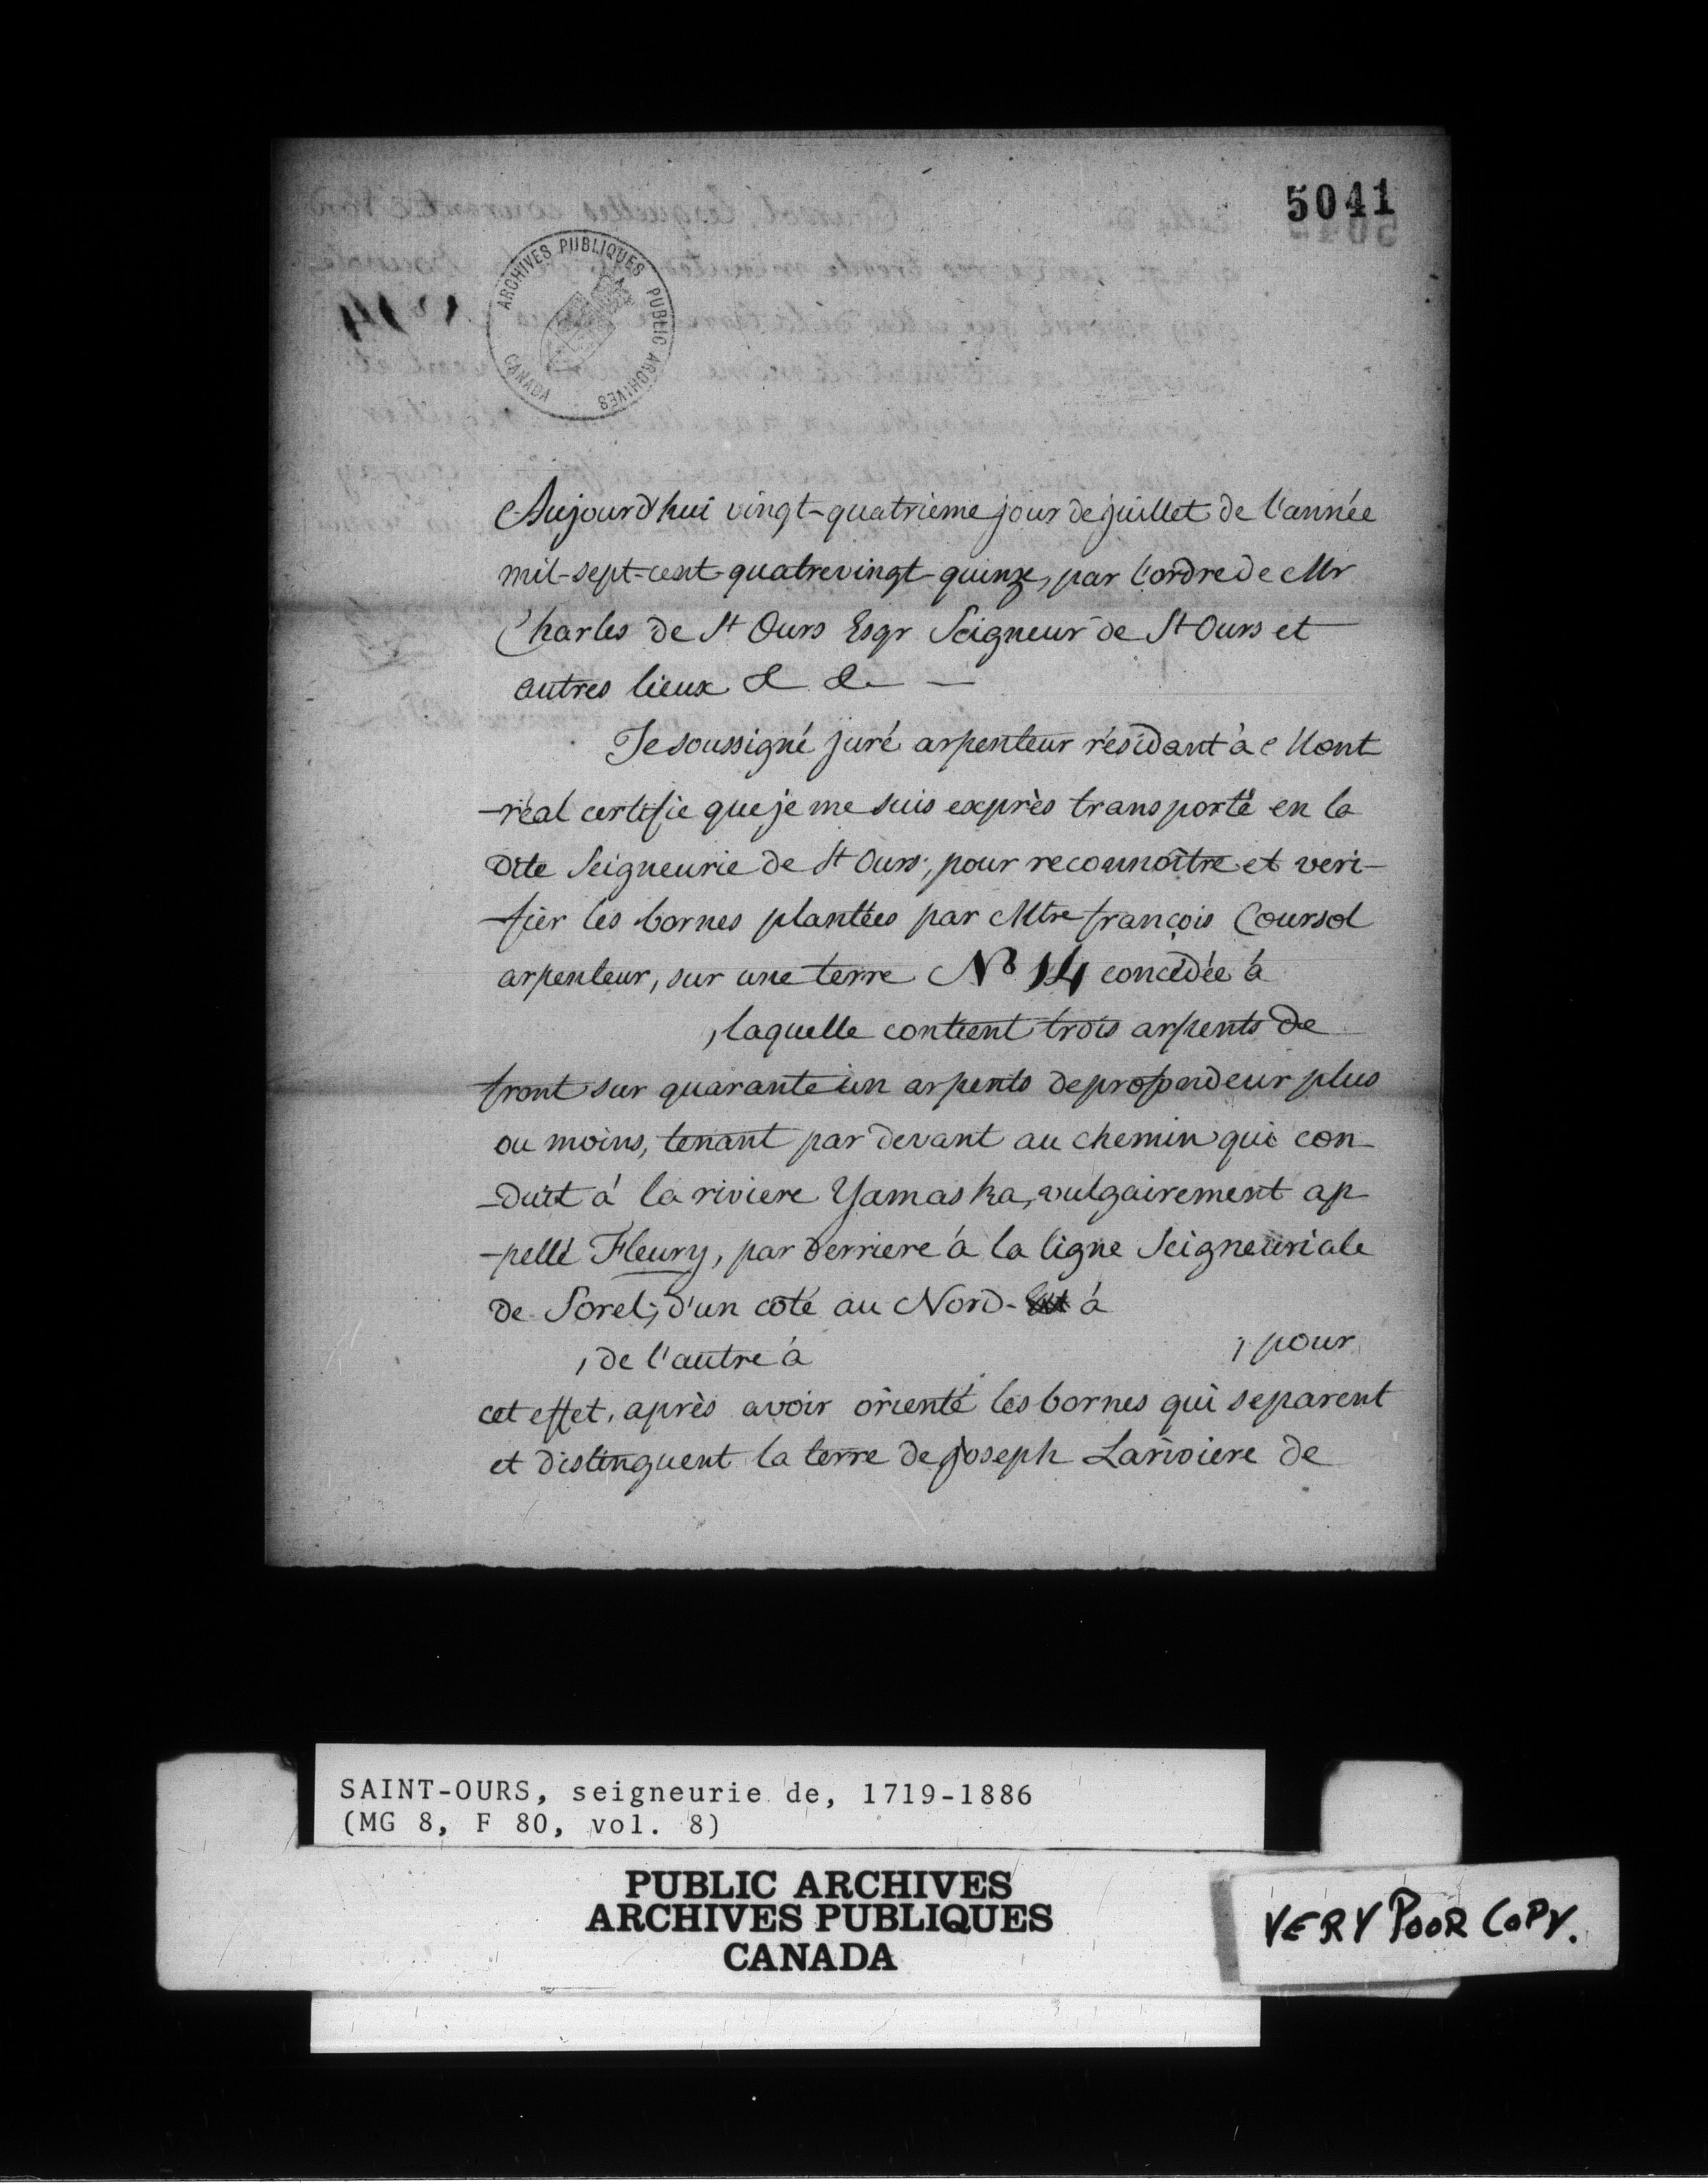 5041
ARCHIVES PUBLIQUES PUBLIC ARCHIVES
CANADA
Aujourd'hui vingt-quatrieme jour de juillet de l'année
mil-sept-cent-quatrevingt-quinze, par l'ordre de Mr
Charles de St Ours Esqr Seigneur de St Ours et
autres lieux & &
Je soussigné juré arpenteur résidant à Mont
-réal certifie que je me suis exprès transporté en la
dite Seigneurie de St Ours, pour reconnoître et veri-
-fier les bornes plantées par Mtre françois Coursol
arpenteur, sur une terre No 14 concédée à
, laquelle contient trois arpents de
front sur quarante un arpents de profondeur plus
ou moins, tenant par devant au chemin qui con-
-duit à la riviere Yamaska, vulgairement ap-
-pellé Fleury, par derriere à la ligne Seigneuriale
de Sorel; d'un coté au Nord- à
, de l'autre à ; pour
cet effet, après avoir orienté les bornes qui separent
et distinguent la terre de joseph Lariviere de
SAINT-OURS, seigneurie de, 1719-1886
(MG 8, F 80, vol. 8)
PUBLIC ARCHIVES
ARCHIVES PUBLIQUES
CANADA
VERY POOR COPY.